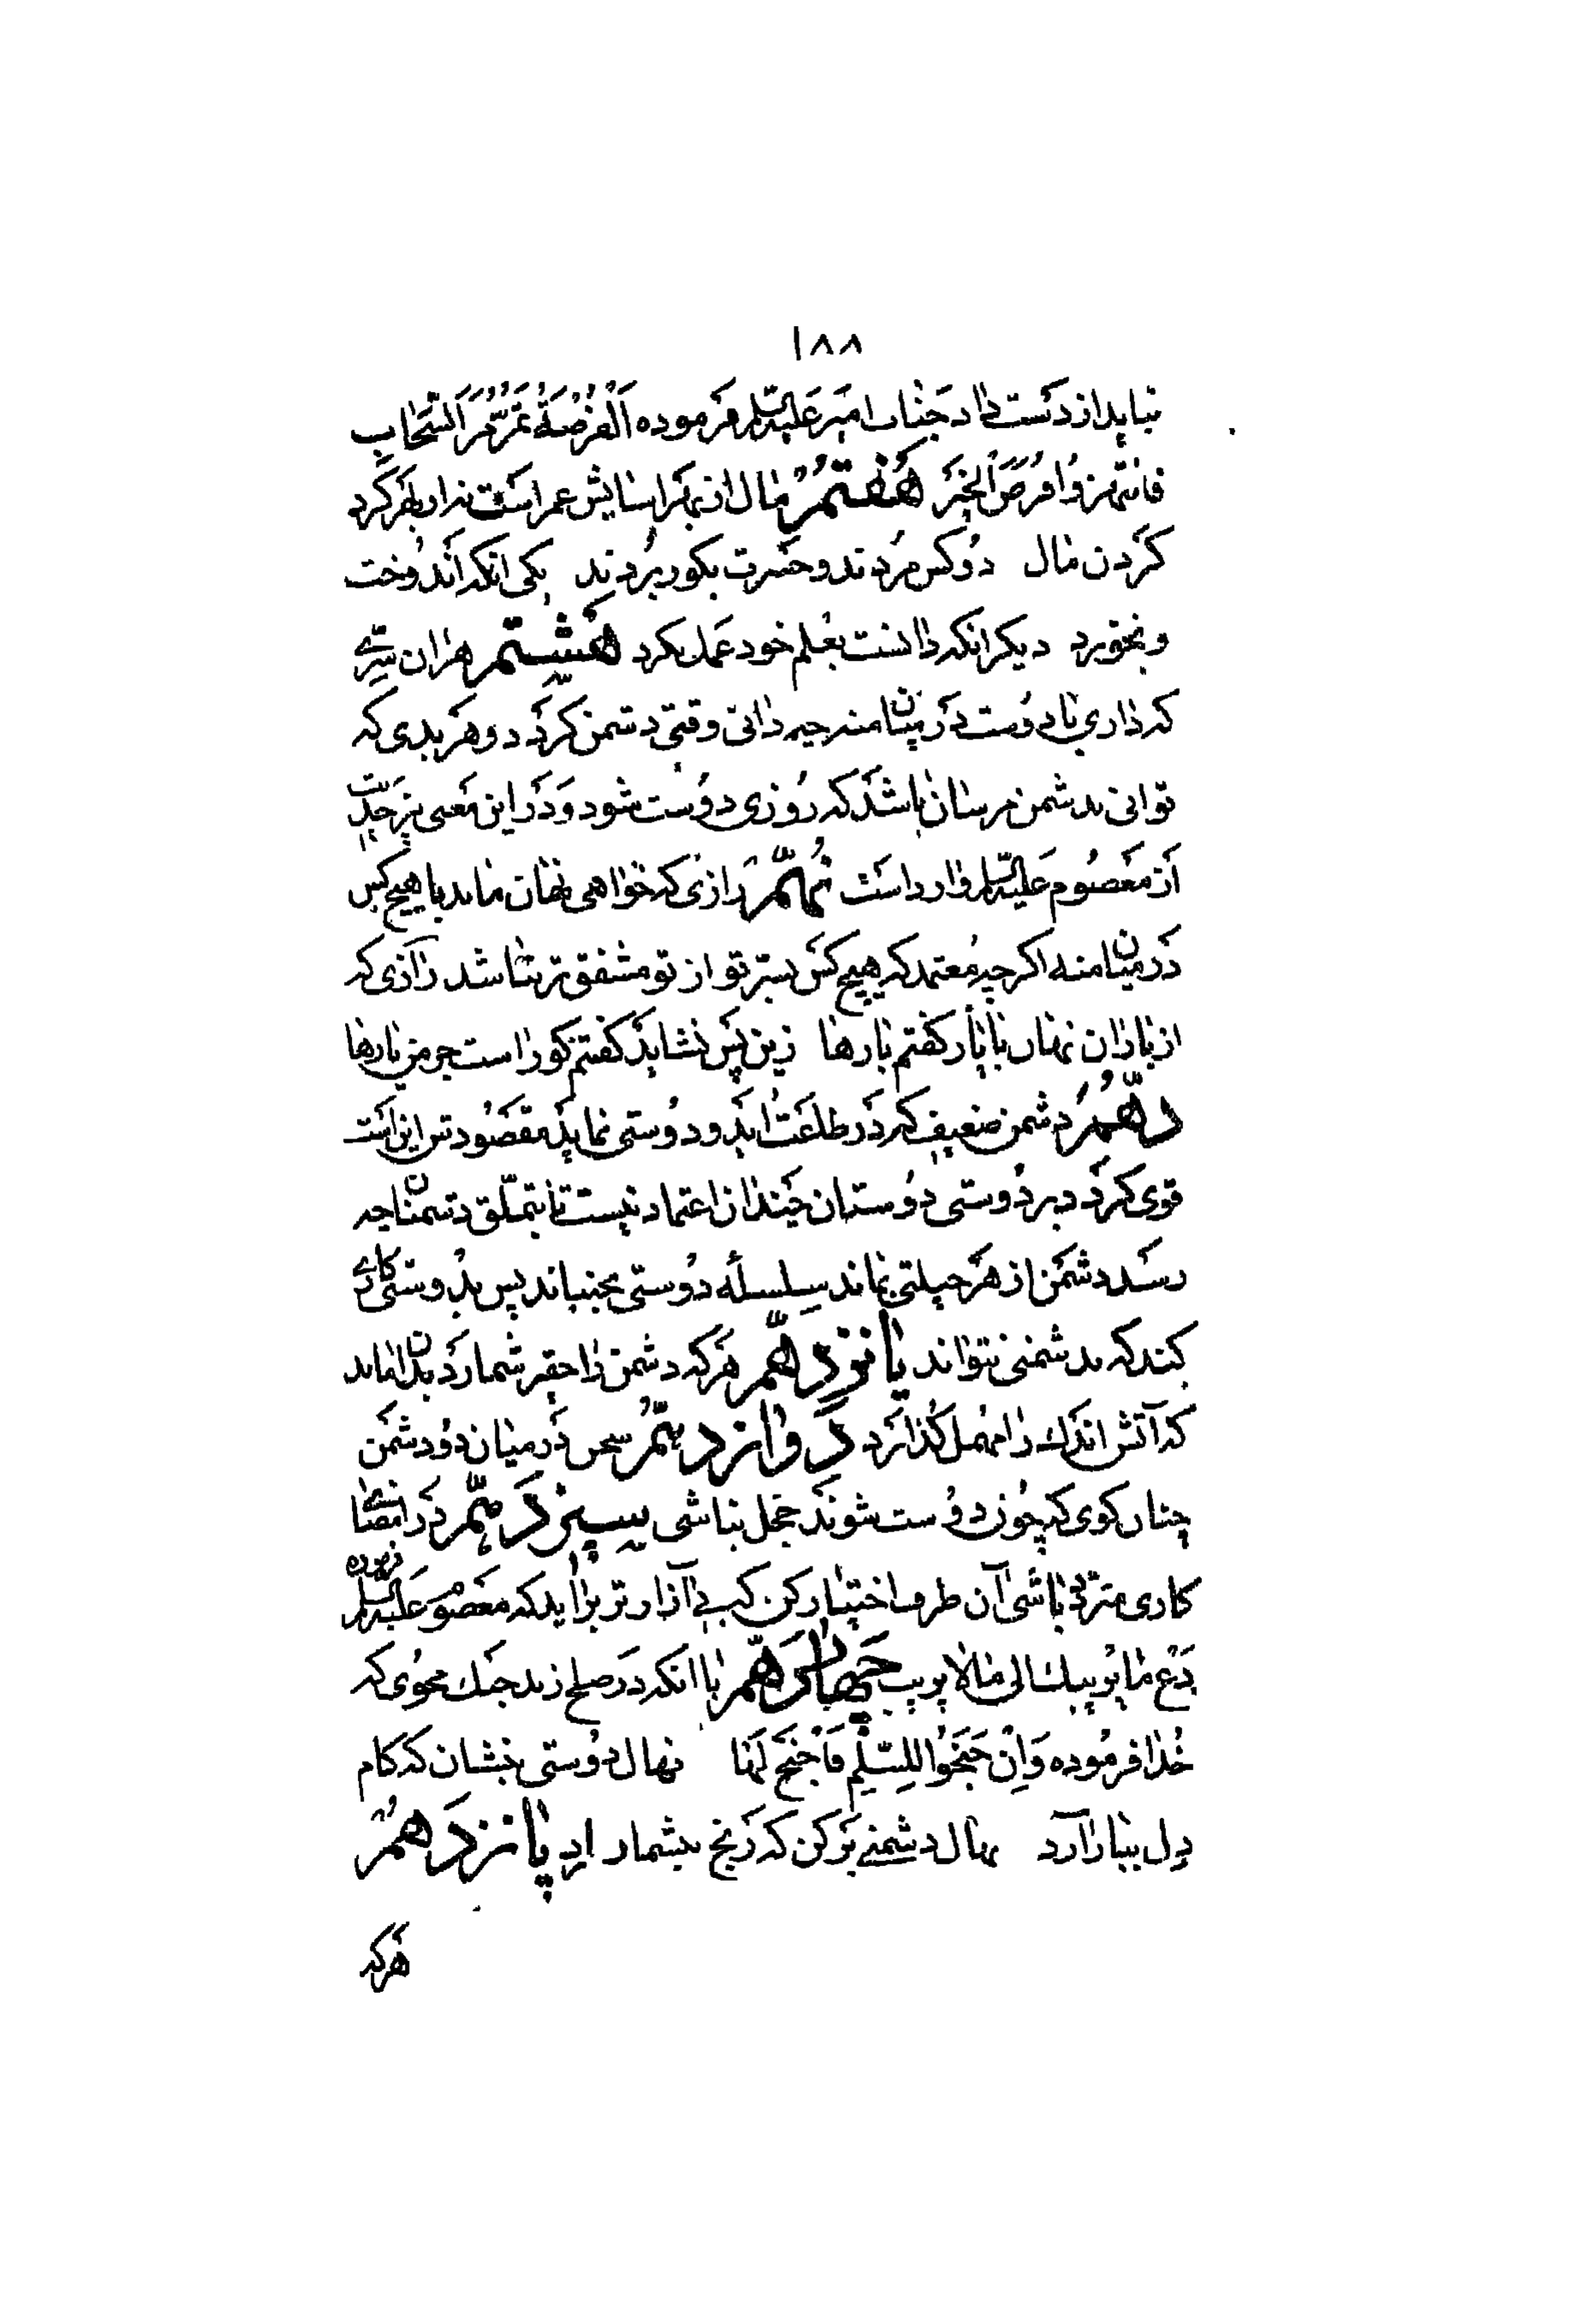 ١٨٨
نباید از دست داد جناب امیر علیه السلام فرموده اَلْفُرْصَةُ تَمُرُّ مَرَّ السَّحَابِ
فانتهزوُا فُرَصَ الْخَیر هفتمُ مال از بهر اسایش عمر است نه از بهر کرد
کردن مال دوکس مردند و حسرت بکور بردند یکی انکه اندوخت
و نخورد دیکر انکه دانست بعلم خود عمل نکرد هشتم هر ان سرّے
که داري با دوست در میان منه چه دانی وقتی دشمن کردد و هر بدی که
توانی بدشمن مرسان باشد که روزی دوست شود و در این معنی نیز حدیث
از معصوم علیه السلم وارد است نهم رازی که خواهی نهان ماند با هیچ کس
در میان منه اکرچه معتمد که هیچ کس بسر تو از تو مشفق تر نباشد رازی که
از یاران نهان با یار کفتم بارها زین پس نشاید کفتم کو راست جر من یارها
دهم دشمن ضعیف که در طاعت اید و دوستی نماید مقصودش این است
قوی کردد بر دوستی دوستان چندان اعتماد نیست تا بتملّق دشمنان چه
رسد دشمن از هر حیلتی بماند سلسلهٔ دوستی بجنباند پس بدوستی کارے
کند که بدشمنی نتواند یانزدهم هرکه دشمن را حقیر شمارد بدان ماند
که آتش اندک را مهمل گذارد دوازدهم سخن در میان دو دشمن
چنان کوی که چون دوست شوند خجل نباشی سیزدهم در امضاے
کاری متردّد باشی آن طرف اختیار کن که بی آزار تر براید که معصوم علیه السلم فرموده
دَعْ ما یُریبک الی ما لا یریب چهاردهم با انکه در صلح زند جنک مجوی که
خدا فرموده وَاِنْ جَنَحُوا لِلسِّلْمِ فَاجْنَحْ لَها نهال دوستی بنشان که کام
دل ببار آرد نهال دشمنے برکن که رنج بیشمار ارد پانزدهم
هرکه